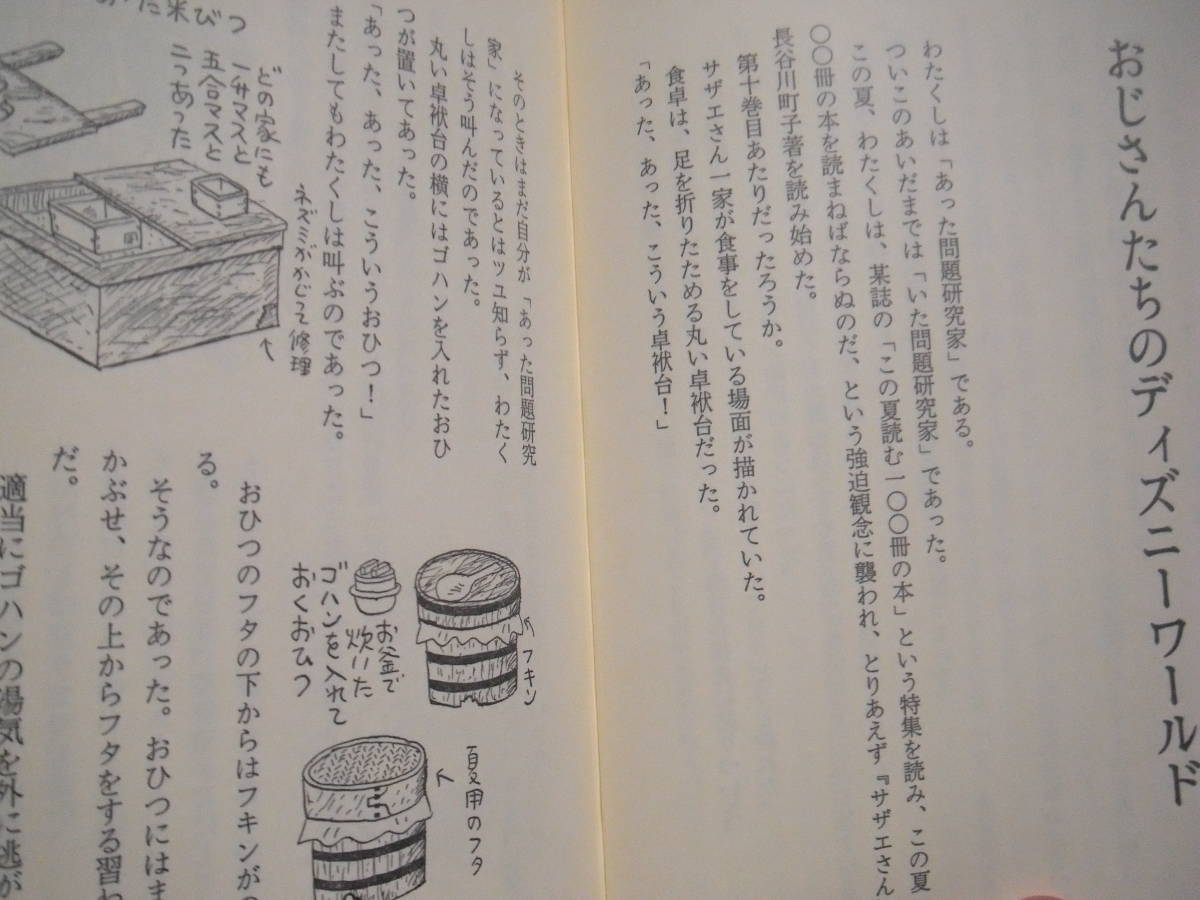 おじさんたちのディズニーワールド
わたくしは「あった問題研究家」である。
ついこのあいだまでは「いた問題研究家」であった。
この夏、わたくしは、某誌の「この夏読む一〇〇冊の本」という特集を読み、この夏
〇〇冊の本を読まねばならぬのだ、という強迫観念に襲われ、とりあえず『サザエさん
長谷川町子著を読み始めた。
第十巻目あたりだったろうか。
サザエさん一家が食事をしている場面が描かれていた。
食卓は、足を折りためる丸い卓袱台だった。
「あった、あった、こういう卓袱台！」
そのときはまだ自分が「あった問題研究
家」になっているとはツユ知らず、わたく
しはそう叫んだのであった。
丸い卓袱台の横にはゴハンを入れたおひ
つが置いてあった。
「あった、あった、こういうおひつ！」
またしてもわたくしは叫ぶのであった。
ネズミがかじって修理
どの家にも
一升マスと
五合マスと
二つあった
た米びつ
フキン
お釜で
炊いた
ゴハンを入れて
おくおひつ
夏用のフタ
おひつのフタの下からはフキンが
る。
そうなのであった。おひつにはま
かぶせ、その上からフタをする習わ
だ。
適当にゴハンの湯気を外に逃が